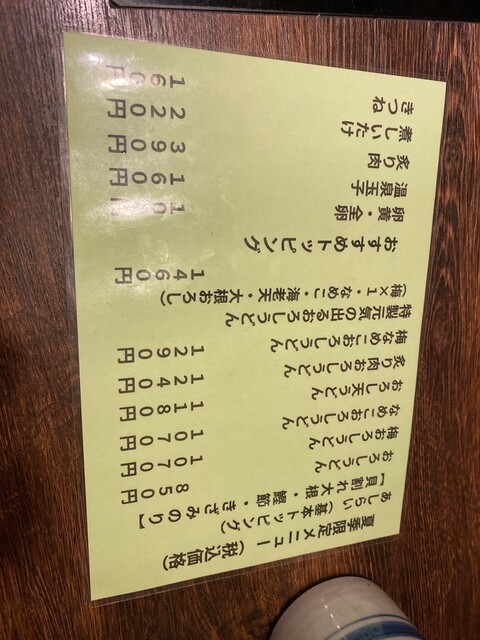 夏季限定メニュー(税込価格)
あしらい(基本トッピング)
【貝割れ大根・鰹節・きざみのり】
おろしうどん 850円
梅おろしうどん 1070円
なめこおろしうどん 1070円
おろし天うどん 1180円
炙り肉おろしうどん 1240円
梅なめこおろしうどん 1290円
特製元気の出るおろしうどん
(梅×1・なめこ・海老天・大根おろし) 1460円
おすすめトッピング
卵黄・全卵
温泉玉子 160円
炙り肉 390円
煮しいたけ 220円
きつね 160円